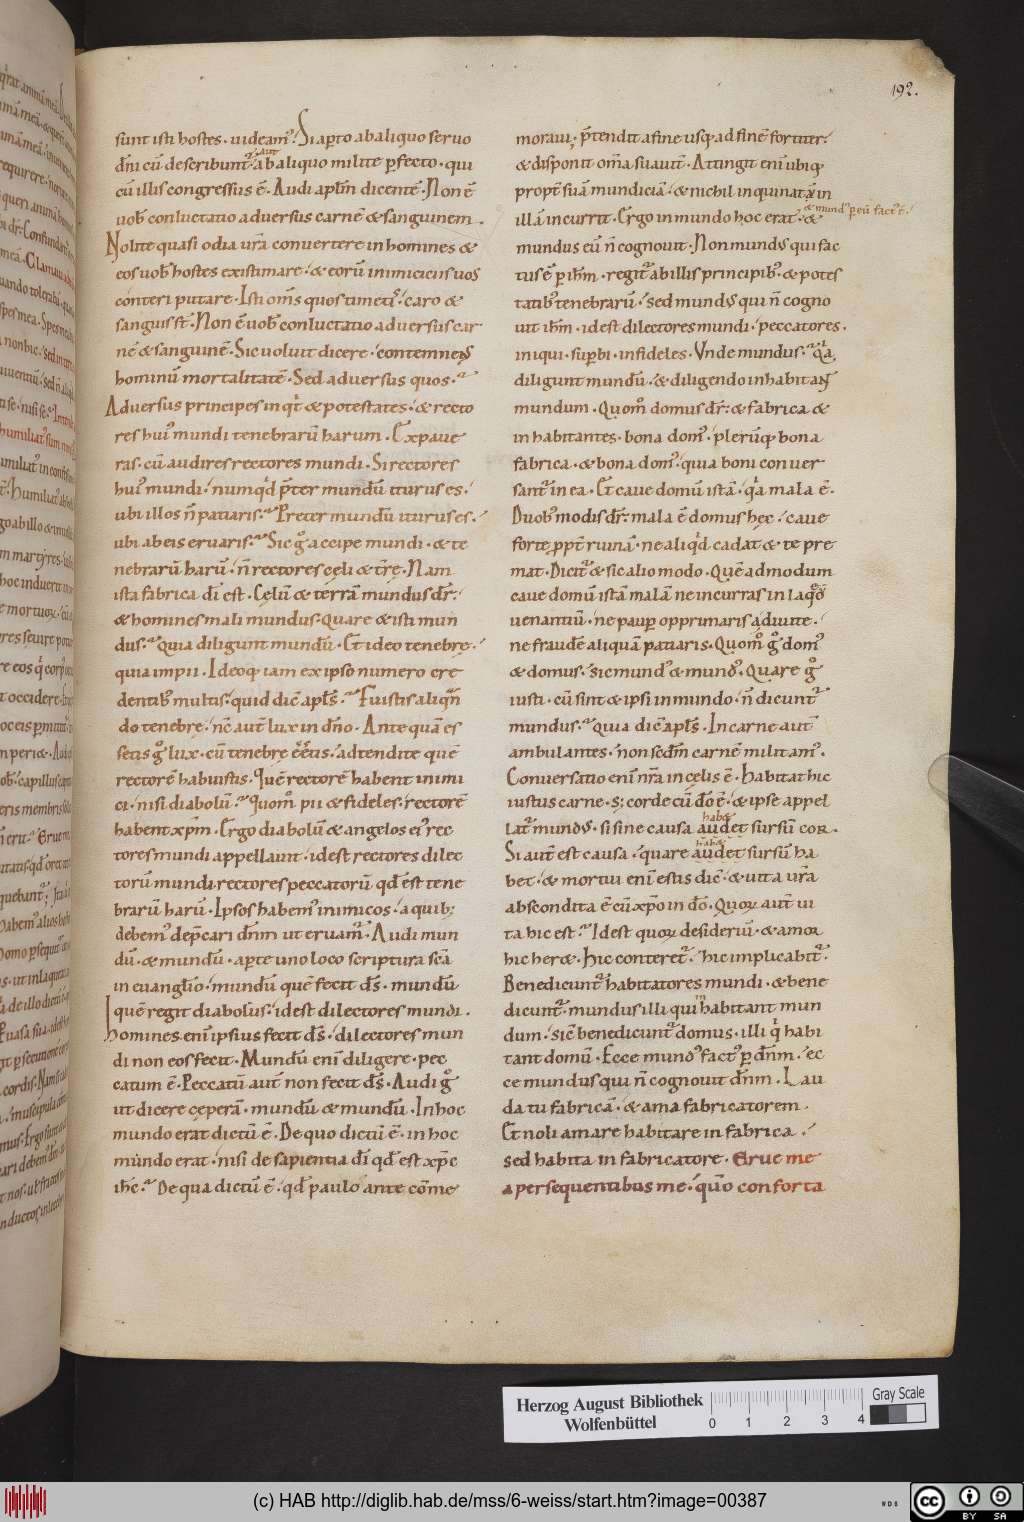 192.
sunt isti hostes. uideam᷒. Si aꝑto ab aliquo seruo
dn̄i cū describunt᷒. aut ab aliquo milite ꝑfecto. qui
cū illis congressus ē. Audi apl̄m dicentē. Non ē
uob̄ conluctatio aduersus carnē & sanguinem.
Nolite quasi odia ur̄a conuertere in homines &
eos uob̄ hostes existimare. & eorū inimiciciis uos
conteri putare. Isti om̄s quos timetis. caro &
sanguis st̄. Non ē uob̄ conluctatio aduersus car
nē & sanguinē. Sic uoluit dicere. contemnens
hominū mortalitatē. Sed aduersus quos.
Aduersus principes inqt & potestates. & recto
res hui᷒ mundi tenebrarū harum. Expaue
ras. cū audires rectores mundi. Si rectores
hui᷒ mundi. numqd p̄ter mundū iturus es.
ubi illos n̄ patiaris. Preter mundū iturus es.
ubi ab eis eruaris. Sic g̊ accipe mundi. & te
nebrarū harū. n̄ rectores cęli & tr̄ę. Nam
ista fabrica dī est. Cęlū & terrā mundus dr̄.
& homines mali mundus. Quare & isti mun
dus. Quia diligunt mundū. Et ideo tenebrę.
quia impii. Ideoq; iam ex ipso numero cre
dentib᷒ multis. quid dic̄ apl̄s. Fuistis aliqn̄
do tenebrę. nc̄ aut̄ lux in dn̄o. Ante quā es
setis g̊ lux. cū tenebrę eētis. adtendite quē
rectorē habuistis. Quē rectorē habent inimi
ci. nisi diabolū. Quom̊ pii & fideles. rectorē
habent xp̄m. Ergo diabolū & angelos ei᷒ rec
tores mundi appellauit. idest rectores dilec
torū mundi. rectores peccatorū qd̄ est tene
brarū harū. Ipsos habem᷒ inimicos. a quib;
debem᷒ dep̄cari dn̄m ut eruam᷒. Audi mun
dū. & mundū. aꝑte uno loco scriptura sc̄a
in euanglīo. mundū quē fecit ds̄. mundū
quē regit diabolus. idest dilectores mundi.
Homines enī ipsius fecit ds̄. dilectores mun
di non eos fecit. Mundū enī diligere. pec
catum ē. Peccatū aut̄ non fecit ds̄. Audi g̊
ut dicere cęperā. mundū & mundū. In hoc
mundo erat dictū ē. De quo dictū ē. in hoc
mundo erat. nisi de sapientia dī qd̄ est xp̄c
ih̄c. De qua dictū ē. qd̄ paulo ante com̄e
moraui. p̄tendit a fine usq; ad finē fortiter.
& disponit om̄a suauit̄. Attingit enī ubiq;
propt̄ suā mundiciā. & nichil inquinatū in
illā incurrit. Ergo in mundo hoc erat. &
& mund᷒ ꝑ eū fact᷒ ē.
mundus eū n̄ cognouit. Non mundus qui fac
tus ē ꝑ ih̄m. regit᷒ ab illis principib᷒. & potes
tatib᷒ tenebrarū. sed mundus qui n̄ cogno
uit ih̄m. idest dilectores mundi. peccatores.
iniqui. supbi. infideles. Vnde mundus. qa
diligunt mundū. & diligendo inhabitant
mundum. Quom̊ domus dr̄. & fabrica &
inhabitantes. bona dom᷒. plerūq; bona
fabrica. & bona dom᷒. quia boni conuer
sant᷒ in ea. Et caue domū istā. qa mala ē.
Duob᷒ modis dr̄. mala ē domus hęc. caue
forte ppt̄ ruinā. ne aliqd cadat & te pre
mat. Dicit᷒ & sic alio modo. Quēadmodum
caue domū istā malā ne incurras in laqos
uenantiū. ne paup opprimaris a diuite.
ne fraudē aliquā patiaris. Quom̊ g̊ dom᷒
& domus. sic mund᷒ & mund᷒. Quare g̊
iusti. cū sint & ipsi in mundo. n̄ dicunt᷒
mundus. Quia dic̄ apl̄s. In carne aut̄
ambulantes. non sedm̄ carnē militam᷒.
Conuersatio enī nr̄a in cęlis ē. Habitat hic
iustus carne. s; corde cū dō ē. & ipse appel
habet
lat᷒ mundus. si sine causa audet sursū cor.
habet
Si aut̄ est causa. quare audet sursū ha
bet. & mortui enī estis dic̄. & uita ur̄a
abscondita ē cū xp̄o in dō. Quoꝝ aut̄ ui
ta hic est. Idest quoꝝ desideriū. & amor
hic heræ. Hic conteret᷒. hic implicabit᷒.
Benedicunt᷒ habitatores mundi. & bene
dicunt᷒. mundus illi qui inhabitant mun
dum. sic̄ benedicunt᷒ domus. illi q habi
tant domū. Ecce mund᷒ fact᷒ ꝑ dn̄m. ec
ce mundus qui n̄ cognouit dn̄m. Lau
da tu fabricā. & ama fabricatorem.
Et noli amare habitare in fabrica.
sed habita in fabricatore. Erue me
a persequentibus me. quō conforta
Herzog August Bibliothek
Wolfenbüttel
0 1 2 3 4
Gray Scale
(c) HAB http://diglib.hab.de/mss/6-weiss/start.htm?image=00387
WDB
cc BY SA